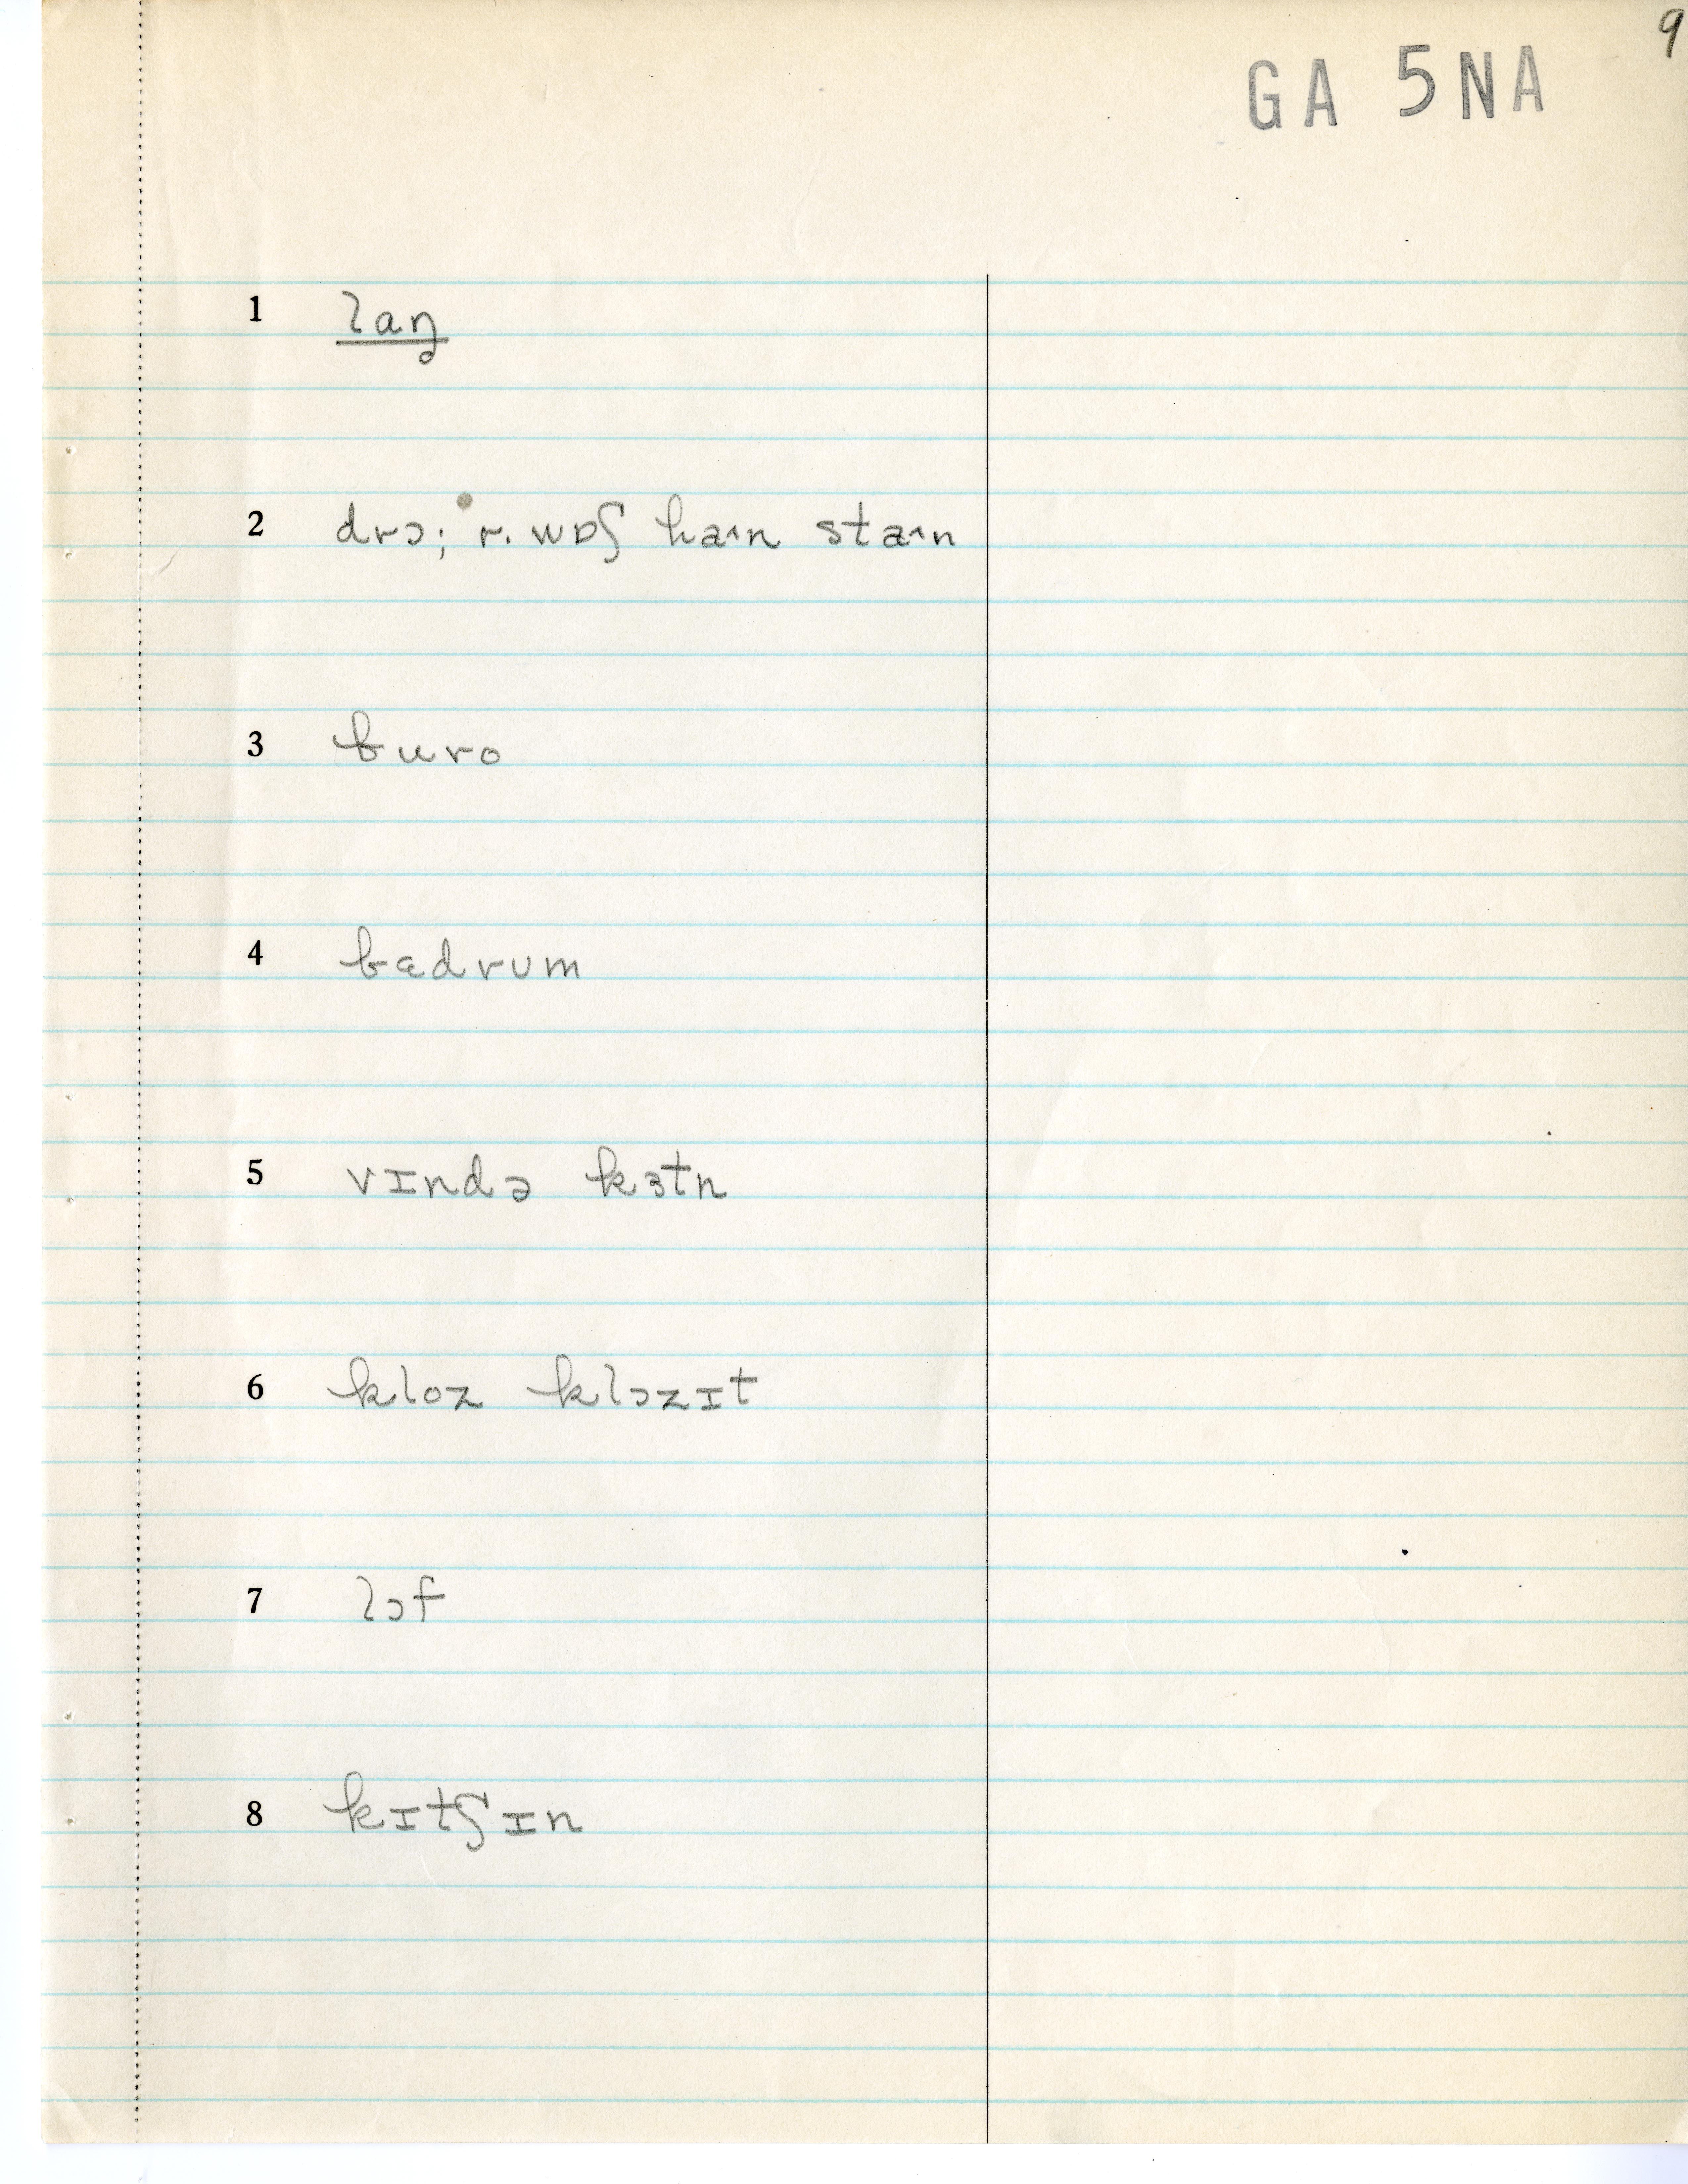 9
GA 5NA
1 laŋ
2 drɔ; r. wɒʃ haɪn staɪn
3 buro
4 bædrum
5 vɪndə kɜtn
6 kloz klɔzɪt
7 lɔf
8 kɪtʃɪn